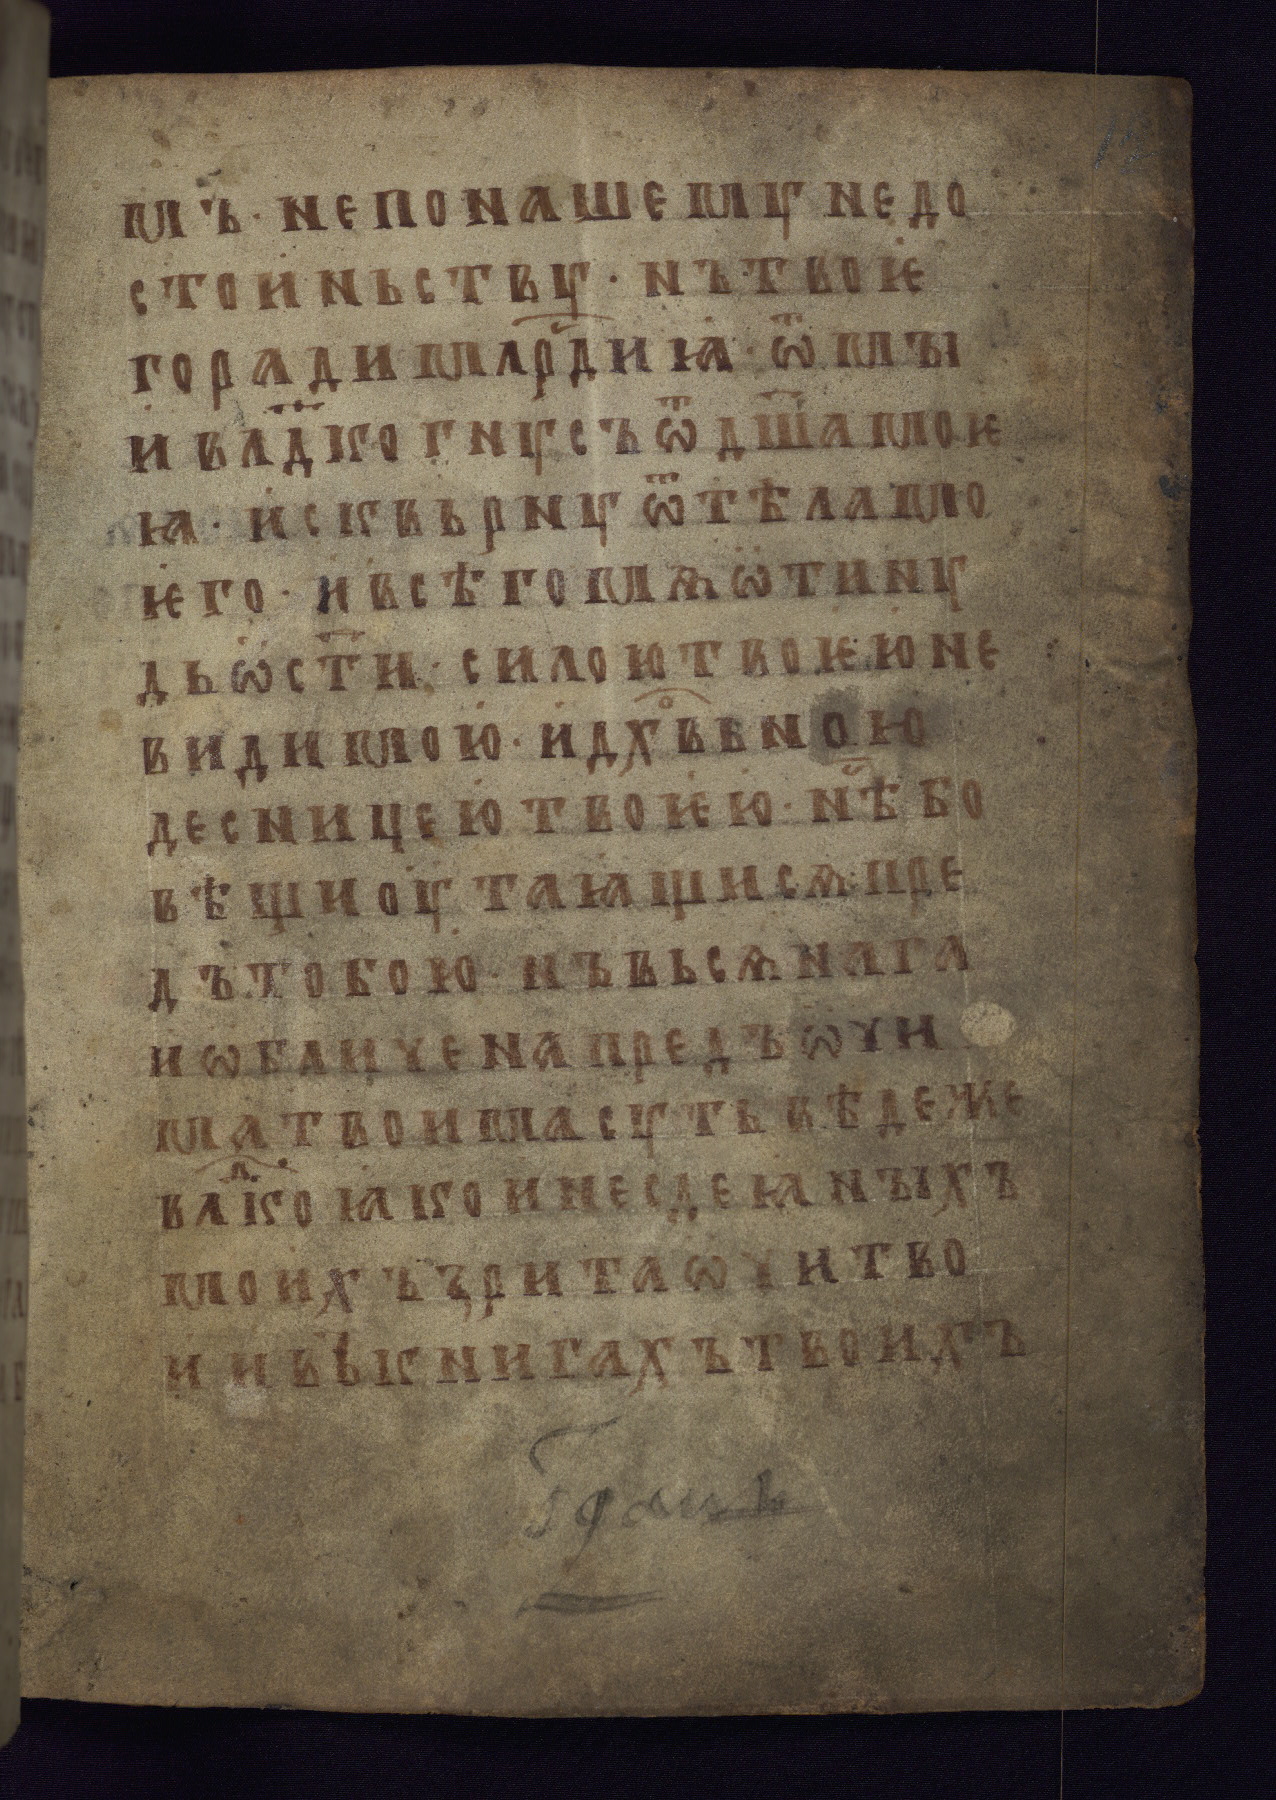 мъ· непонашемꙋ недо
стоиньствꙋ· нътвоѥ
горади млрⷭ҇диꙗ· ѿмы
и влⷣкогнꙋсъ ѿдш҃амоѥ
ꙗ· искврьнꙋ ѿтѣламо
ѥго· ивсѣгомѧѡтинꙋ
дьѡст҃и· силоютвоѥюне
видимою· идх҃ъвною
десницеютвоѥю· нѣ҇бо
вѣщиоꙋтаꙗщисѧпре
дътобою· нъвьсѧнага
иѡбличенапредъѡчи
матвоимасꙋтьвѣдеже
влⷣкоꙗкоинесдеꙗныхъ
моихъзритаѡчитво
иивъкнигахътвоихъ